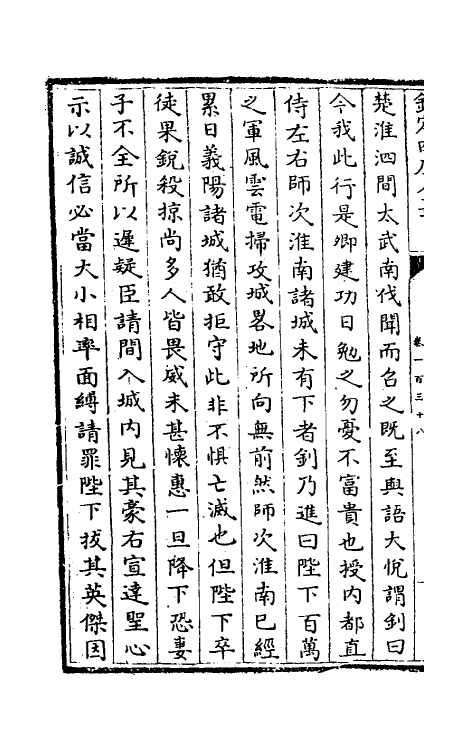 楚淮泗間太武南伐聞而召之既至與語大悅謂釗曰
今我此行是卿建功日勉之勿憂不富貴也授內都直
侍左右師次淮南諸城未有下者釗乃進曰陛下百萬
之軍風雲電掃攻城畧地所向無前然師次淮南已經
累日義陽諸城猶敢拒守此非不懼亡滅也但陛下卒
徒果銳殺掠尚多人皆畏威未甚懷惠一旦降下恐妻
子不全所以遲疑臣請間入城內見其豪右宣達聖心
示以誠信必當大小相率面縛請罪陛下拔其英傑因
卷一百三十八